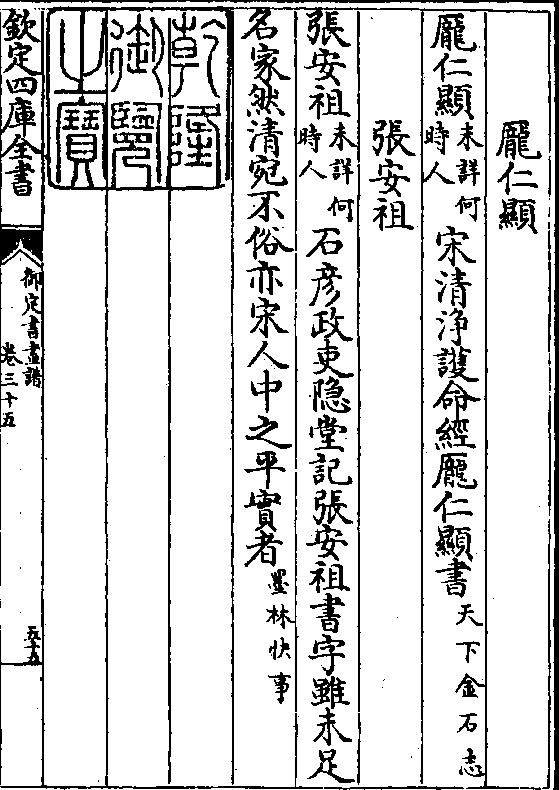 龎仁顯
龎仁顯未詳何時人宋清浄護命經龎仁顯書天下金石志
張安祖
張安祖未詳何時人石彦政吏隠堂記張安祖書字雖未足
名家然清宛不俗亦宋人中之平實者墨林快事
乾隆
御覽
之寶
欽定四庫全書
御定書畫譜
卷三十五
五十五